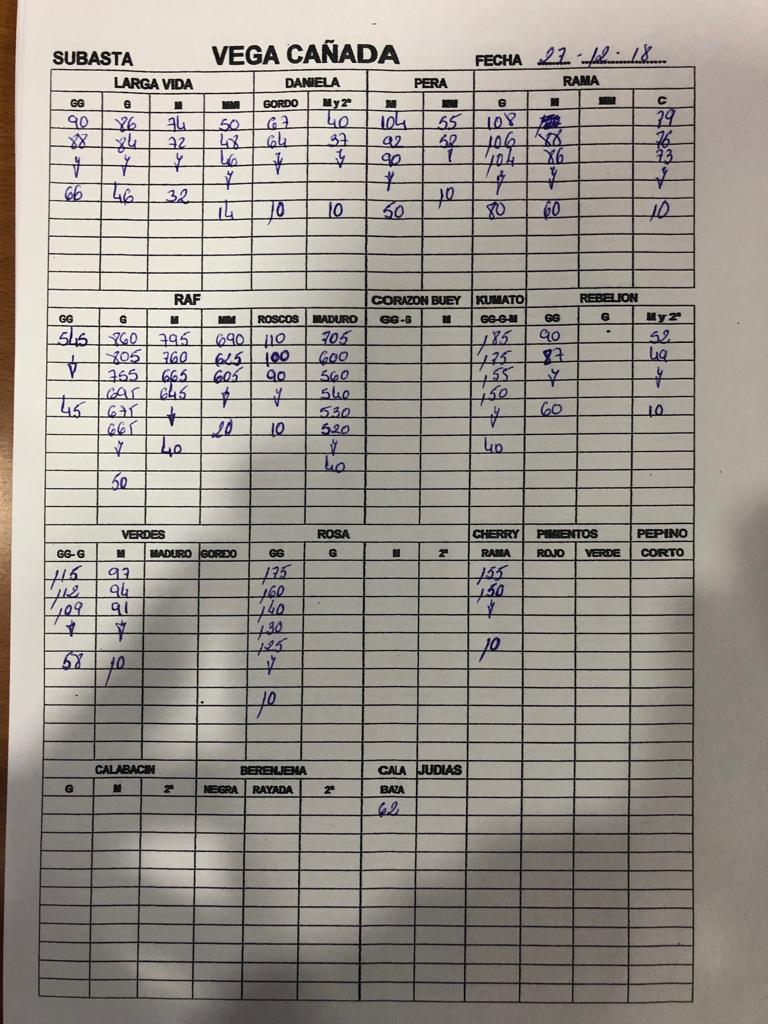 SUBASTA VEGA CAÑADA FECHA 27-12-18
LARGA VIDA DANIELA PERA RAMA
GG G M MM GORDO M y 2ª M MM G M MM C
90 86 74 50 67 40 104 55 108 79
88 84 72 48 64 37 92 52 106 88 76
46 90 104 86 73
66 46 32 10
14 10 10 50 80 60 10
RAF CORAZON BUEY KUMATO REBELION
GG G M MM ROSCOS MADURO GG-G M GG-G-M GG G M y 2ª
545 860 795 690 110 705 185 90 52
805 760 625 100 600 175 87 49
755 665 605 90 560 155
695 645 540 150
45 675 530 60 10
665 20 10 520
40 40
40
50
VERDES ROSA CHERRY PIMIENTOS PEPINO
GG-G M MADURO GORDO GG G M 2ª RAMA ROJO VERDE CORTO
115 97 175 155
112 94 160 150
109 91 140
130
125 10
58 10
10
CALABACIN BERENJENA CALA JUDIAS
G M 2ª NEGRA RAYADA 2ª BAZA
62